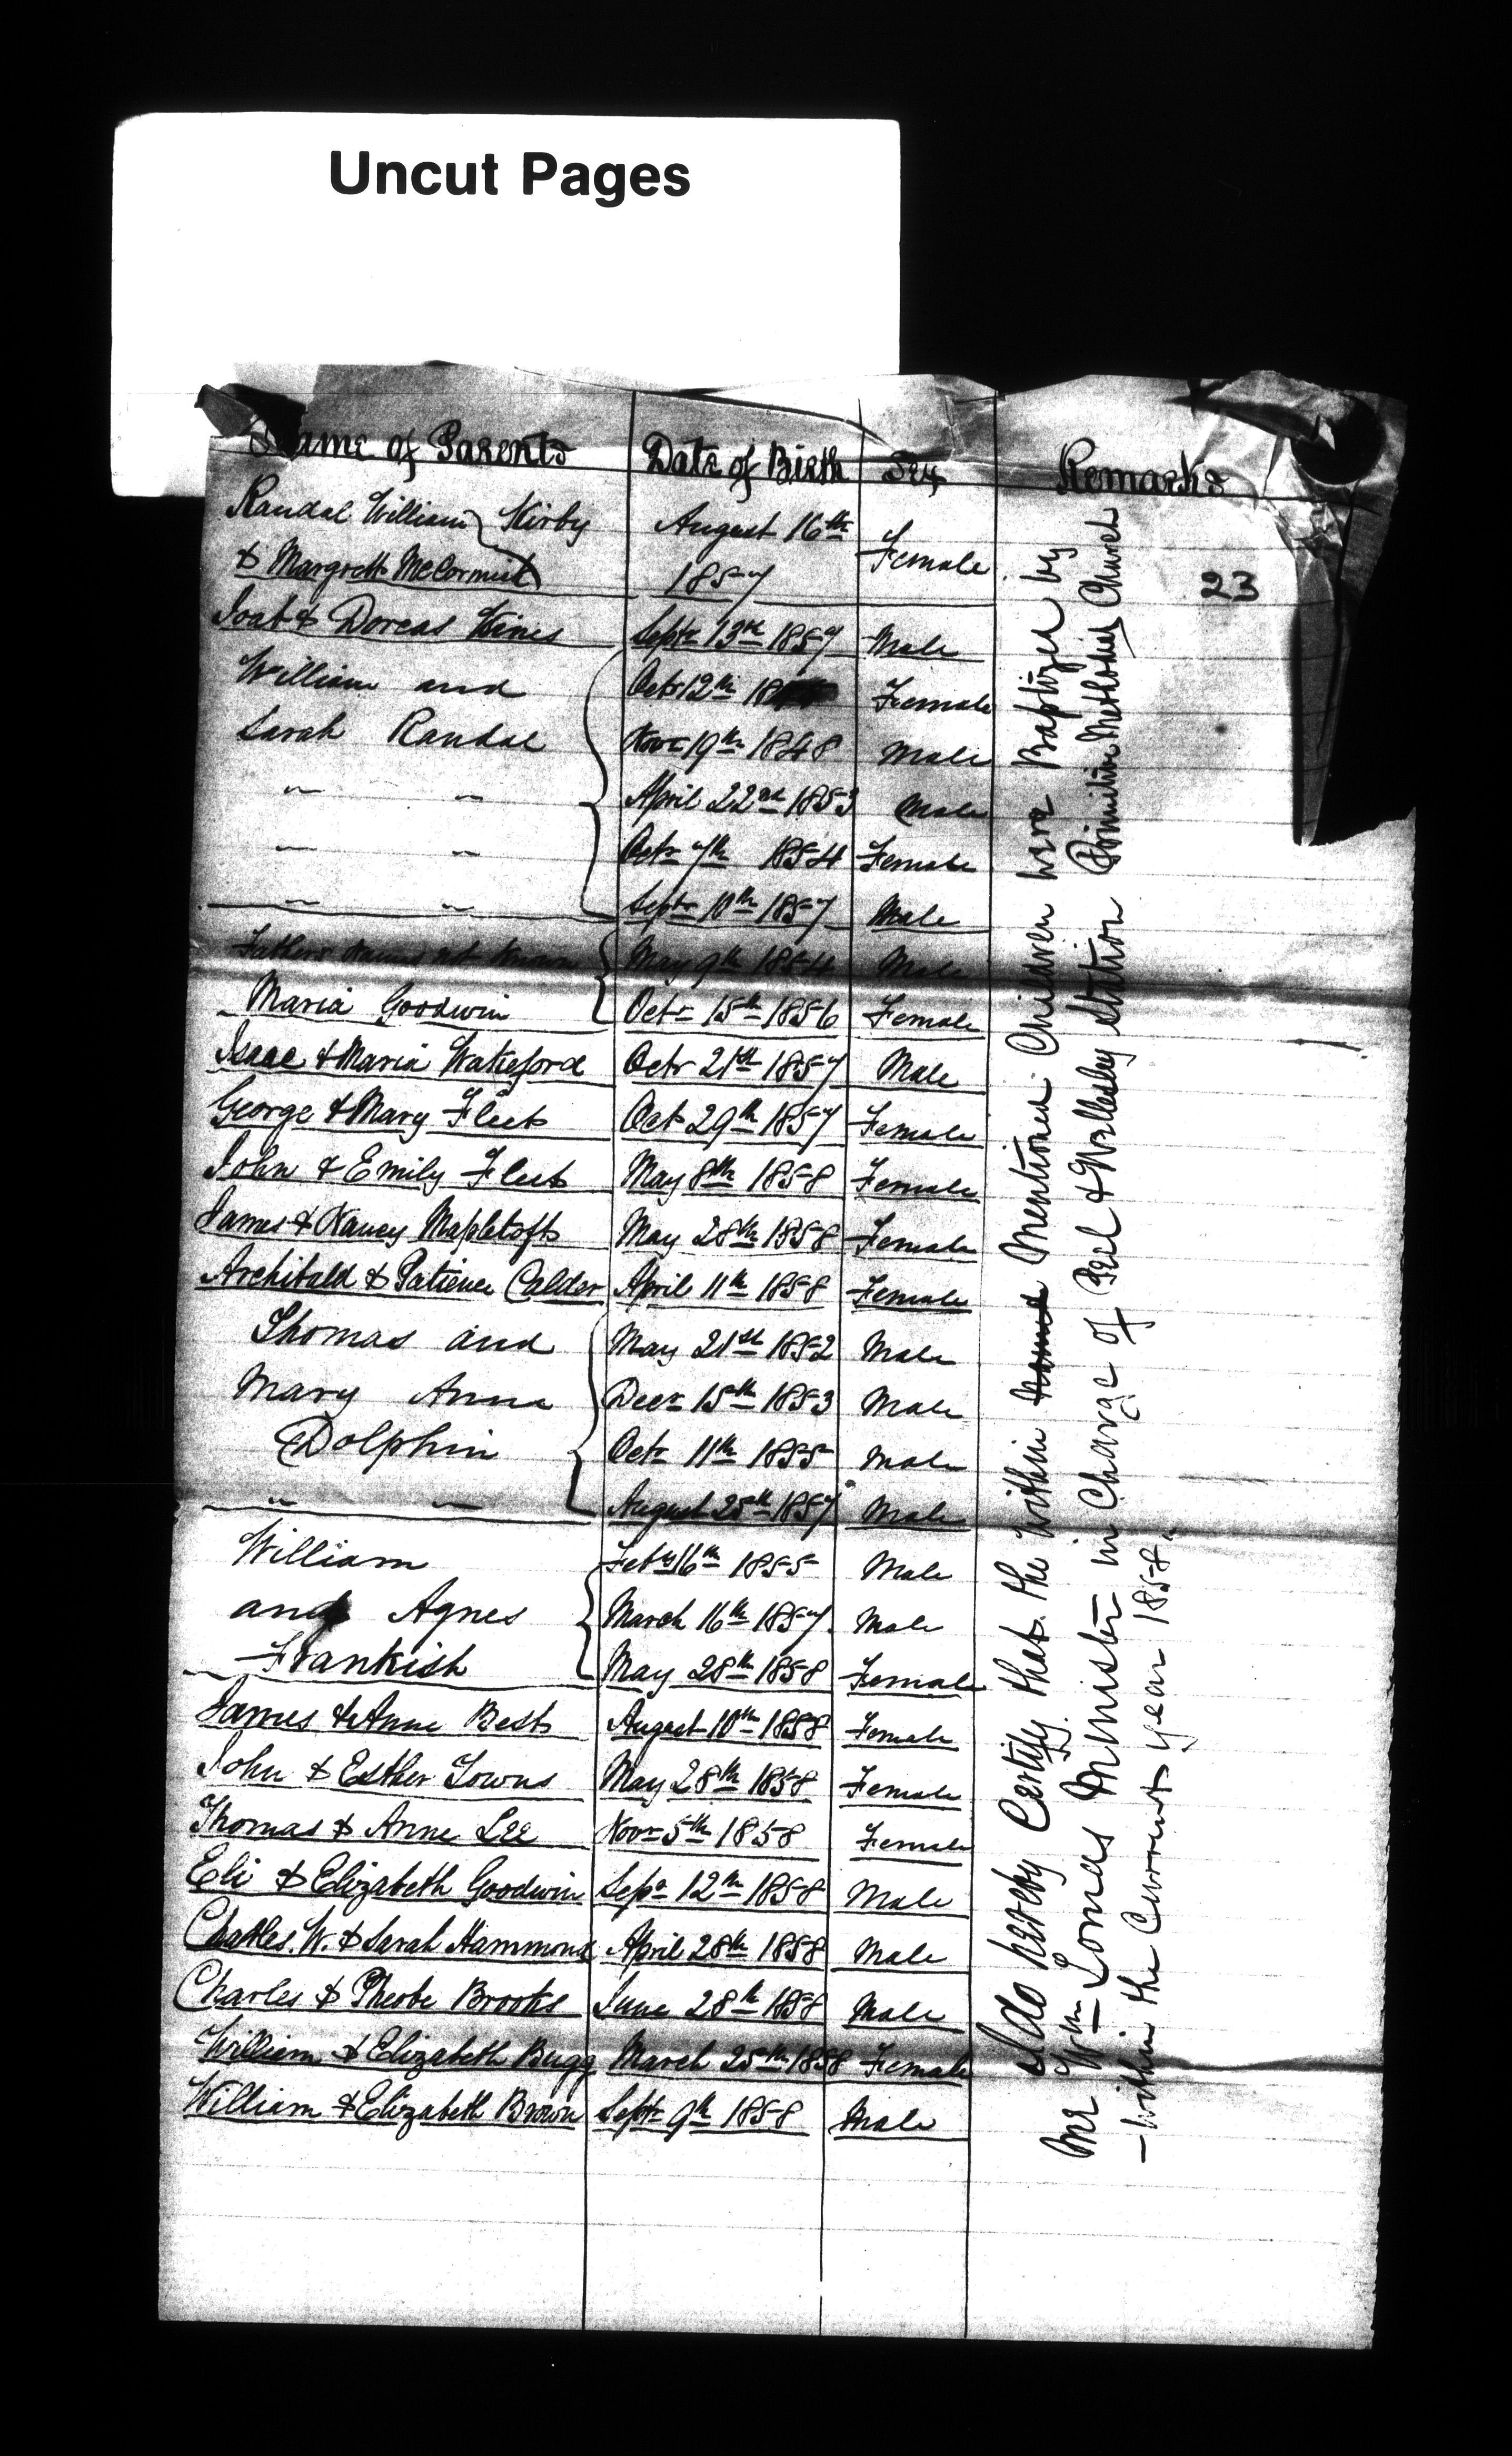 Uncut Pages
Name of Parents Date of Birth Sex Remarks
Randal William Kirby August 16th Female
& Margrett McCormick 1857
23
Joab & Dorcas Hines Septr 13th 1857 Male
William and Octr 12th 18 Female
Sarah Randal Novr 19th 1848 Male
" " April 22nd 1853 Male
" " Octr 7th 1854 Female
" " Septr 10th 1857 Male
Fathers name not known May 9th 1854 Male
Maria Goodwin Octr 15th 1856 Female
Isaac & Maria Wakeford Octr 21st 1857 Male
George & Mary Fleet Oct 29th 1857 Female
John & Emily Fleet May 8th 1858 Female
James & Nancy Mapletoft May 28th 1858 Female
Archibald & Patience Calder April 11th 1858 Female
Thomas and May 21st 1852 Male
Mary Anne Decr 15th 1853 Male
Dolphin Octr 11th 1855 Male
" " August 25th 1857 Male
William Feby 16th 1855 Male
and Agnes March 16th 1857. Male
Frankish May 28th 1858 Female
James & Anne Best August 10th 1858 Female
John & Esther Towns May 28th 1858 Female
Thomas & Anne Lee Novr 5th 1858 Female
Eli & Elizabeth Goodwin Sepr 12th 1858 Male
Charles. W. & Sarah Hammond April 28th 1858 Male
Charles & Pheobe Brooks June 28th 1858 Male
William & Elizabeth Bugg March 25th 1858 Female
William & Elizabeth Brown Septr 9th 1858 Male
I do hereby Certify that the within Mentioned Children were Baptized by
Me Wm Lomas Minister in Charge of Peel & Wellesley Station Primitive Methodist Church
within the Current year 1858"